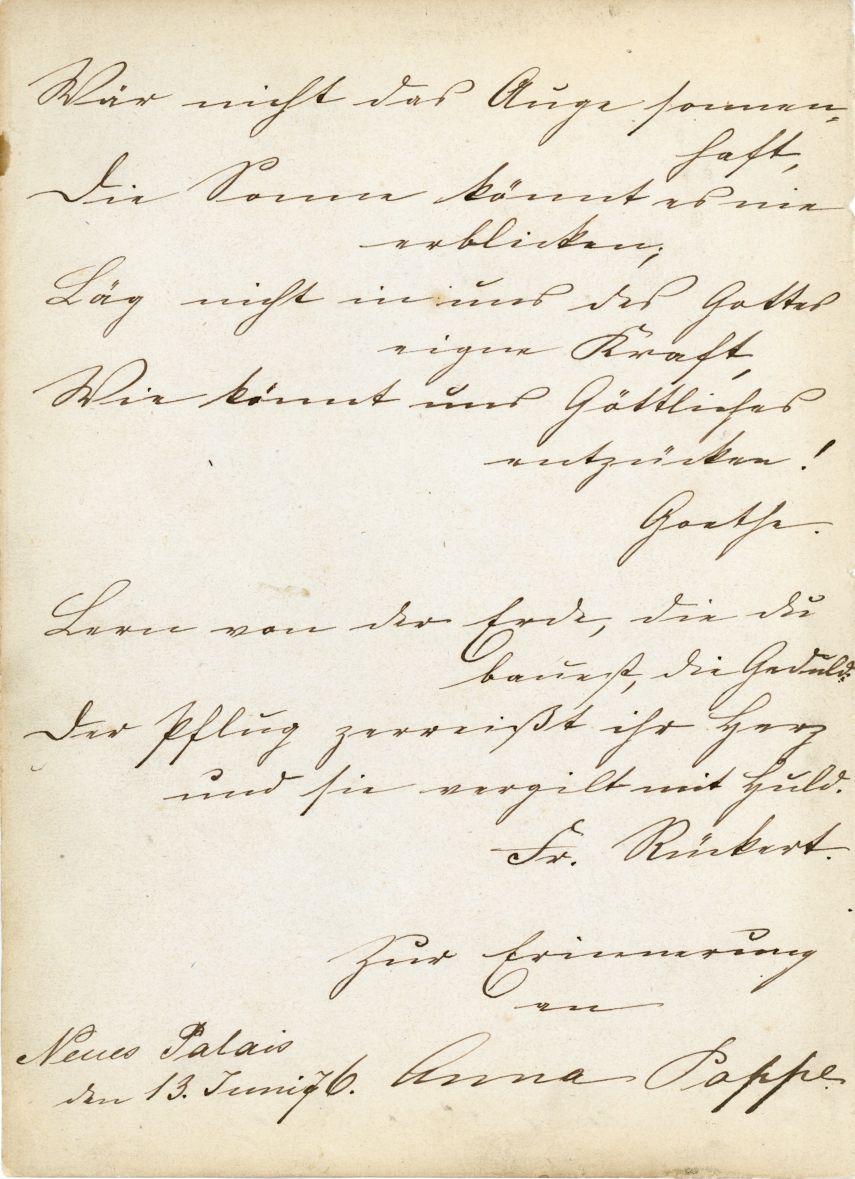 Wär nicht das Auge sonnen-
haft,
Die Sonne könnt es nie
erblicken;
Läg nicht in uns des Gottes
eigne Kraft,
Wie könnt uns Göttliches
entzücken!
Goethe.
Lern von der Erde, die du
bauest, die Geduld:
Der Pflug zerreißt ihr Herz
und sie vergilt mit Huld.
Fr. Rückert.
Zur Erinnerung
an
Neues Palais
den 13. Juni 76. Anna Poppe